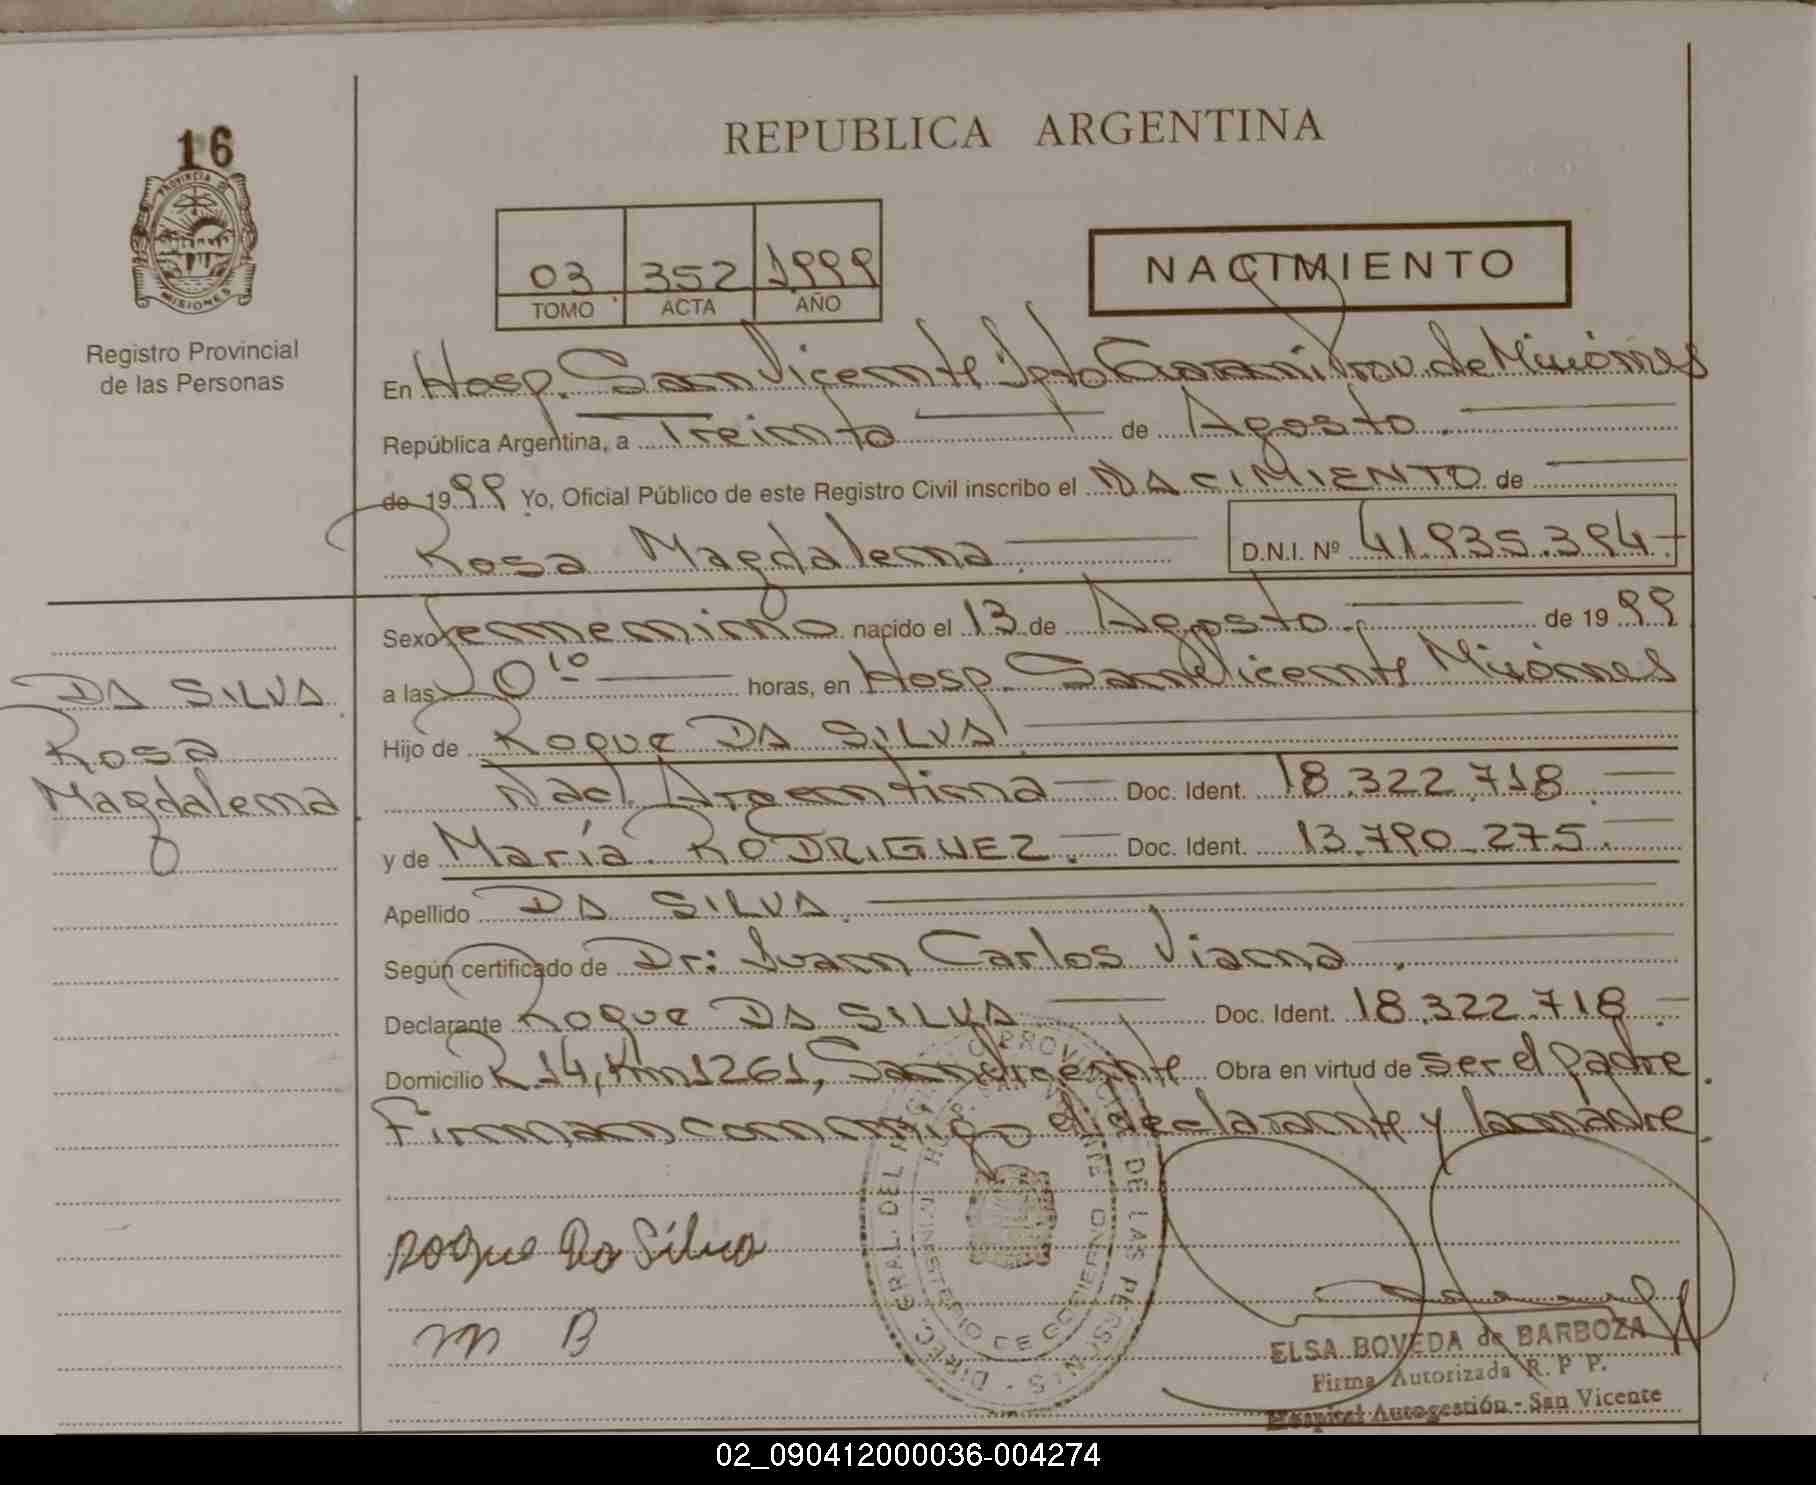 16
PROVINCIA DE
MISIONES
Registro Provincial
de las Personas
REPUBLICA ARGENTINA
03 352 1999
TOMO ACTA AÑO
NACIMIENTO
En Hosp. San Vicente Dpto Guaraní Prov. de Misiones
República Argentina, a Treinta de Agosto.
de 1999 Yo, Oficial Público de este Registro Civil inscribo el NACIMIENTO de
Rosa Magdalena. D.N.I. Nº 41.935.394-
Sexo femenino nacido el 13 de Agosto. de 1999
a las 0¹⁰ horas, en Hosp. San Vicente Misiones
Hijo de Roque DA SILVA.
Nacl. Argentina Doc. Ident. 18.322.718.
y de María RODRIGUEZ. Doc. Ident. 13.790.275.
Apellido DA SILVA.
Según certificado de Dr: Juan Carlos Viana.
Declarante Roque DA SILVA Doc. Ident. 18.322.718.
Domicilio R.14, Km 1261, San Vicente. Obra en virtud de ser el padre.
Firman conmigo el declarante y la madre.
DA SILVA.
Rosa
Magdalena.
Roque Da Silva
m B
DIREC. GRAL. DEL PROVINCIAL DE LAS PERSONAS
MINISTERIO DE GOBIERNO
ELSA BOVEDA de BARBOZA
Firma Autorizada R. P P.
Hospital Autogestión - San Vicente
02_090412000036-004274